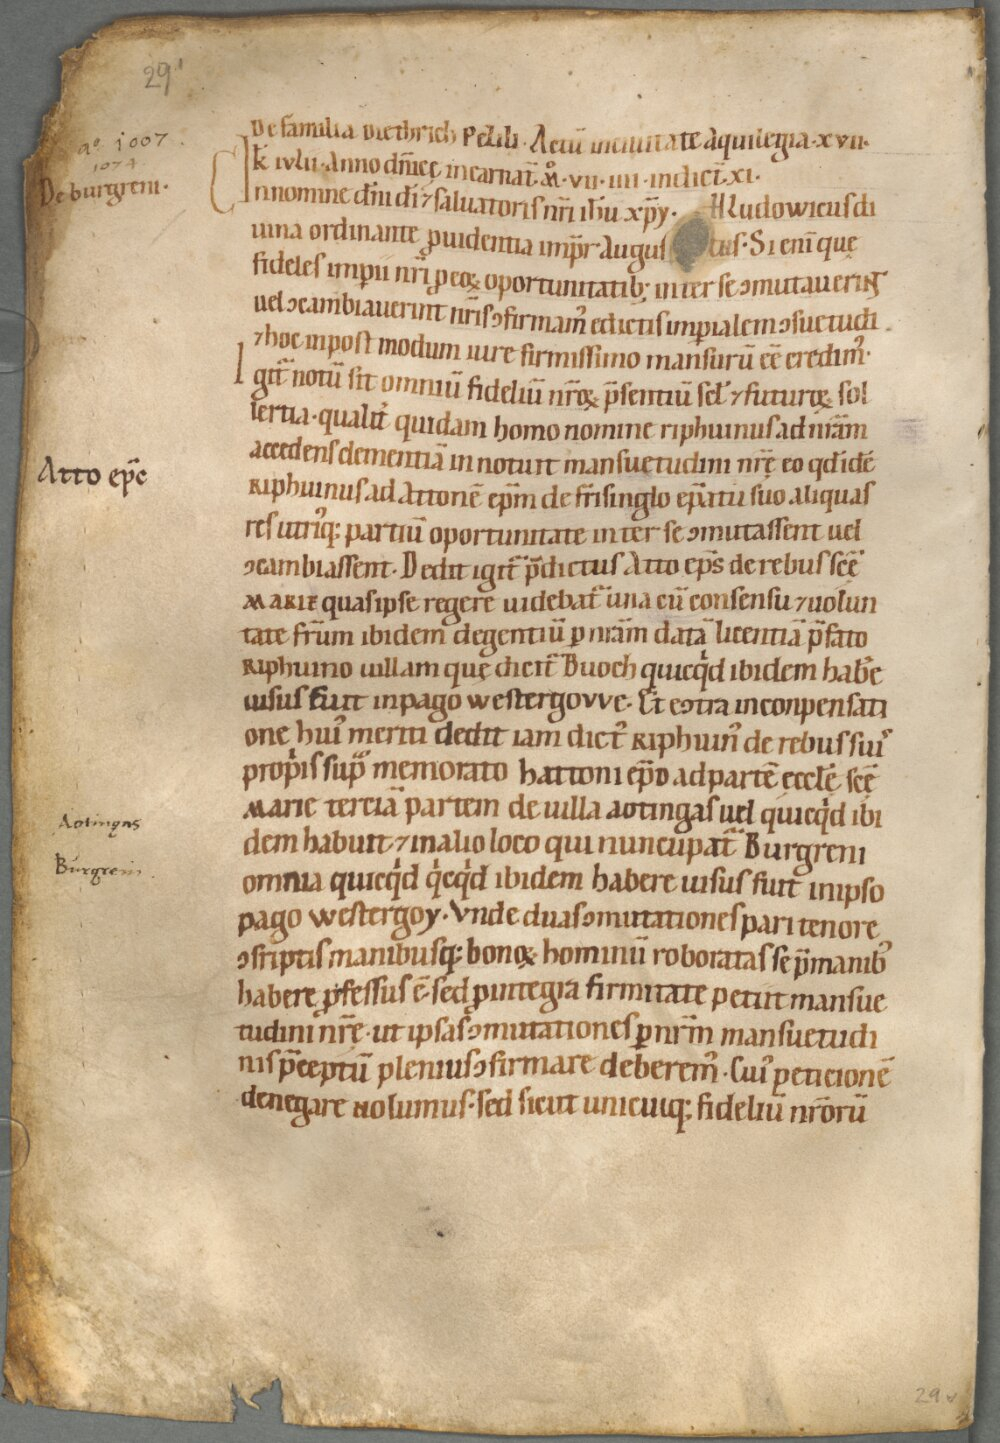 29'
aº 1007.
1074.
De burgreni.
De familia Diethrich Pezili. Actū in ciuitate aquilegia. xvii.
k̄ iulii. Anno dn̄icę incarnat̄. M̊. vii. iiii. indict̄. xi.
In nomine dn̄i dī ⁊ saluatoris nr̄i ih̄u xp̄y. Hludowicus di
uina ordinante ꝓuidentia imp̄r augus tus. Si enī que
fideles imp̄ii nr̄i ꝓ eoꝝ oportunitatib; inter se ↄmutauerint
uel ↄcambiauerint nr̄is ↄfirmam᾽ edictis imp̄ialem ↄsuetudi
⁊ hoc in postmodum iure firmissimo mansurū eē credim᾽.
Igit̄ notū sit omniū fideliū nr̄oꝝ p̄sentiū scł ⁊ futuroꝝ sol
lertia. qualit̄ quidam homo nomine riphuinus ad nr̄am
accedens clementiā innotuit mansuetudini nr̄ę eo qd̄ idē
Riphuinus ad Attonē ep̄m de fr̄isinglo ep̄atu suo aliquas
res utriq; partiū oportunitate inter se ↄmutassent uel
ↄcambiassent. Dedit igit̄ p̄dictus Atto ep̄s de rebus scē
MARIE quas ipse regere uidebat̄ una cū consensu ⁊ uolun
tate fr̄um ibidem degentiū ꝑ nr̄am datā licentiā p̄fato
Riphuino uillam quę dicit̄ Buoch quicq̇d ibidem habe
uisus fuit in pago westergovve. Et ↄtra in conpensati
one hui᾽ meriti dedit iam dict᾽ Riphuin᾽ de rebus sui᾽
propriis sup̄ memorato hattoni ep̄o ad partē eccłę scę
Marie terciā partem de uilla aotingas uel quicq̇d ibi
dem habuit ⁊ in alio loco qui nuncupat̄ Burgreni
omnia quicq̇d q̇cq̇d ibidem habere uisus fuit in ipso
pago westergoy. Vnde duas ↄmutationes pari tenore
ↄscriptis manibusq; bonoꝝ hominū roboratas se p̄manib᾽
habere ꝓfessus ē. sed ꝓ integra firmitate petiit mansue
tudini nr̄ę. ut ipsas ↄmutationes ꝑ nr̄m mansuetudi
nis p̄ceptū plenius ↄfirmare deberem᾽. Cui᾽ peticionē
denegare noluimus. sed sicut unicuiq; fideliū nr̄orū
Atto ep̄c
Aotingas
Burgreni
29v